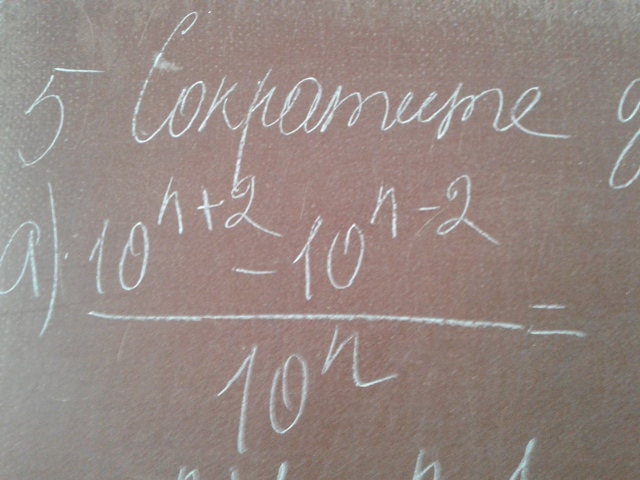 5 Сократите
а) 10^{n+2} - 10^{n-2}
10^n =